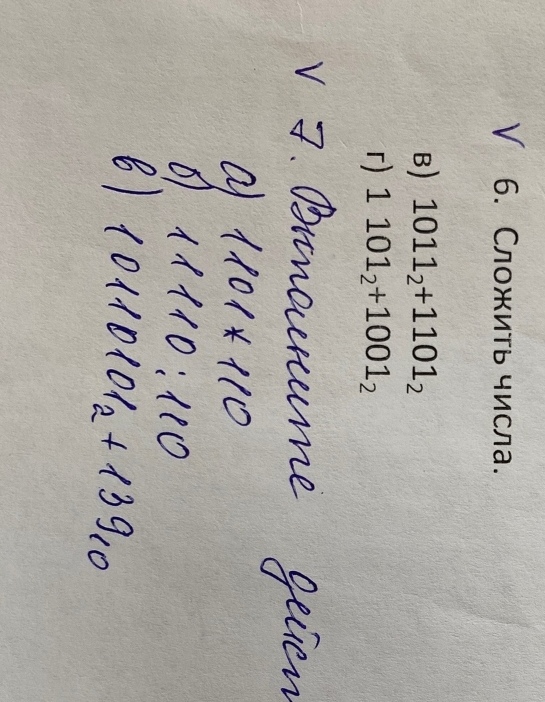 √ 6. Сложить числа.
в) 1011₂+1101₂
г) 1 101₂+1001₂
√ 7. Выполните дейст
а) 1101*110
б) 11110:110
в) 10110101₂+139₁₀